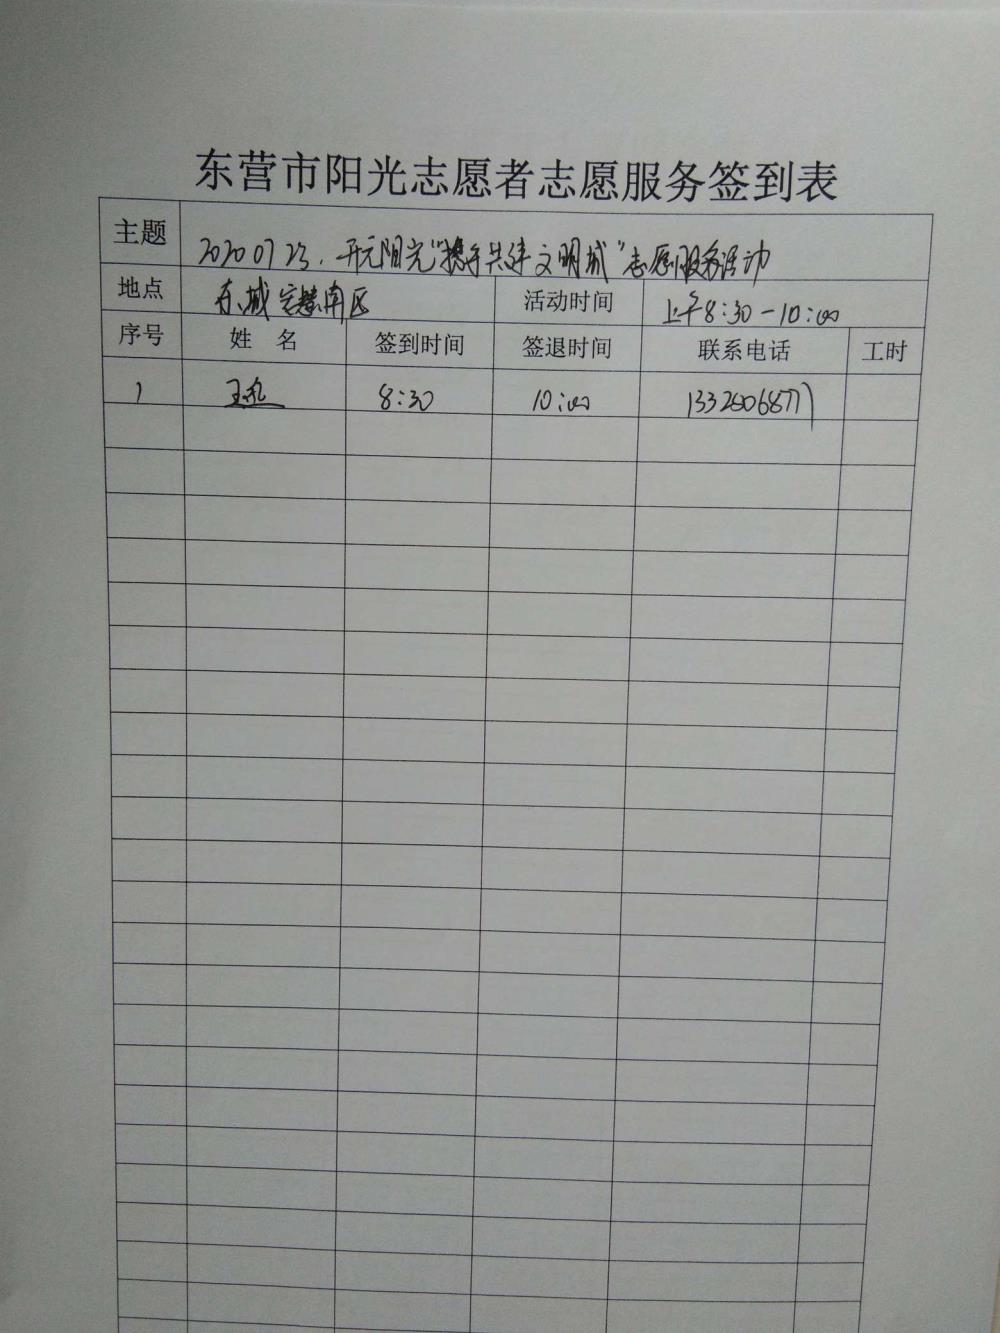 东营市阳光志愿者志愿服务签到表
主题 20200723.开元阳光"携手共建文明城"志愿服务活动
地点 东城 安慧南区 活动时间 上午8:30-10:00
序号 姓 名 签到时间 签退时间 联系电话 工时
1 王 8:30 10:00